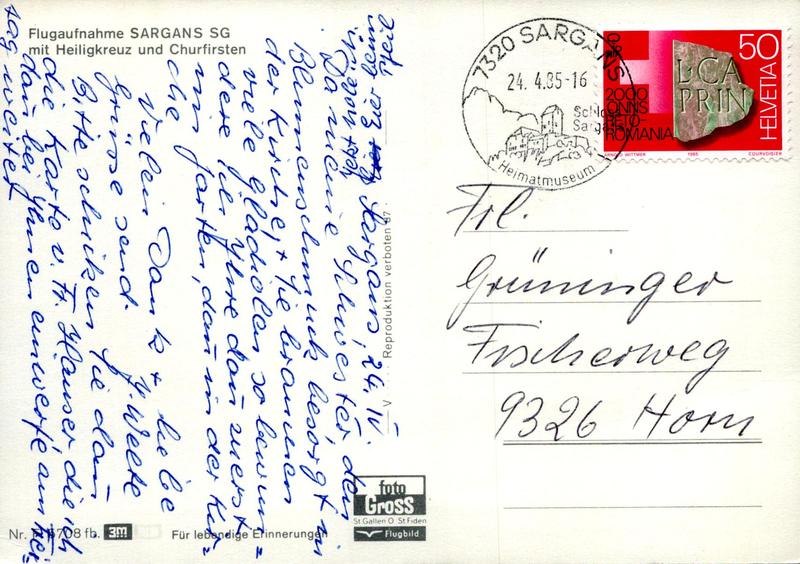 Flugaufnahme SARGANS SG
mit Heiligkreuz und Churfirsten
Pfeil
Sargans 24. IV.
Da meine Schwester den
Blumenschmuck besorgt in
der Kirche, + Sie brauchen
viele Gladiolen so bewun=
dere ich Ihre dann zuerst
im Garten, dann in der Kir=
che
Vielen Dank + liebe
Grüsse send.
Bitte schicken Sie dann
die Karte v. Fr. Hauser, die ich
dann bei Ihnen einwerfe am Frei=
tag weiter
V Reproduktion verboten 87
7320 SARGANS
24.4.85-16
Schloss
Sargans
Heimatmuseum
50
HELVETIA
2000
ONNS
RETO-
ROMANIA
L·CA
PRIN
1985
COURVOISIER
Frl.
Grüninger
Fischerweg
9326 Horn
foto
Gross
St.Gallen O St Fiden
Flugbild
Nr. 708 fb. 3m
Für lebendige Erinnerungen